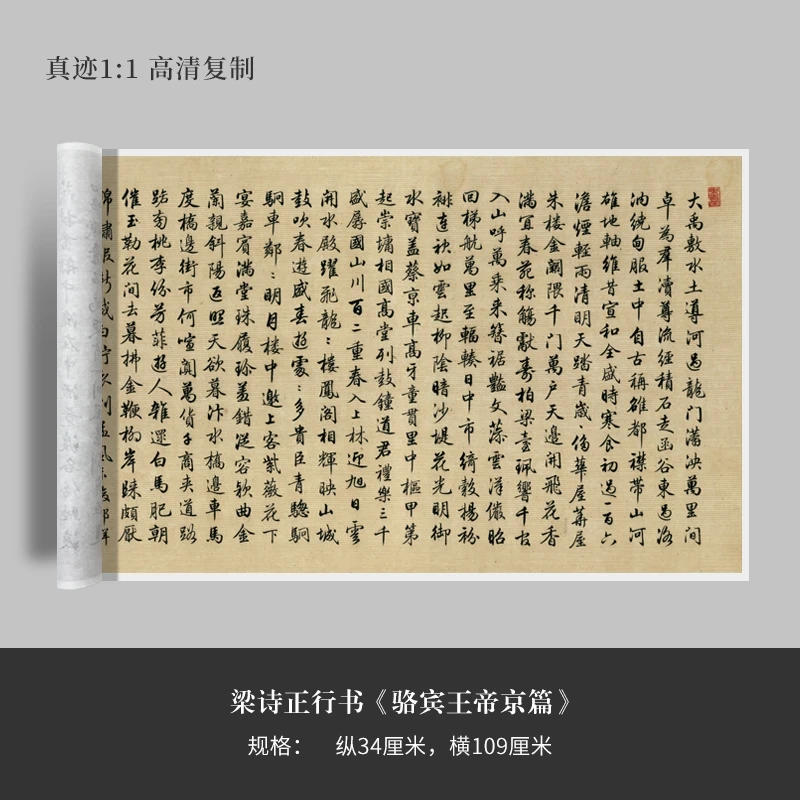 真迹1:1 高清复制
大禹敷水土導河過龍门泱萬里间
卓為羣瀆尊流經積石走函谷東過洛
汭繞甸服土中自古稱雄都襟帶山河
雄地軸維昔宣和全盛時寒食初過一百六
澹煙輕雨清明天踏青歲華屋
朱楼金闕隈千门萬户天邊開飛花香
滿宜春苑称觴獻壽柏梁臺珮響千官
入山呼萬乘来簪裾艷文藻雲洋儼昭
回梯航萬里至輻輳日中市綺縠楊紛
裶連袂如雲起柳陰暗沙堤花光明御
水寶盖蔡京車高牙童貫里中樞甲第
起崇墉相國高堂列鼓鐘道君禮樂三千
盛國山川百二重春入上林迎旭日雲
開水殿躍飛龍〻楼鳳阁相輝映山城
鼓吹春遊盛春遊處〻多貴臣青驄駉
駉車鄰〻明月楼中邀上客紫薇花下
宴嘉賓滿堂珠履盖錯從容欵曲金
蘭親斜陽返照天欲暮汴水橋邊車馬
度橋邊街市何喧闐萬貨千商夾道路
南桃李份芳菲遊人雜遝白馬肥朝
催玉勒花间去暮拂金鞭柳岸歸頗厭
梁诗正行书《骆宾王帝京篇》
规格： 纵34厘米，横109厘米